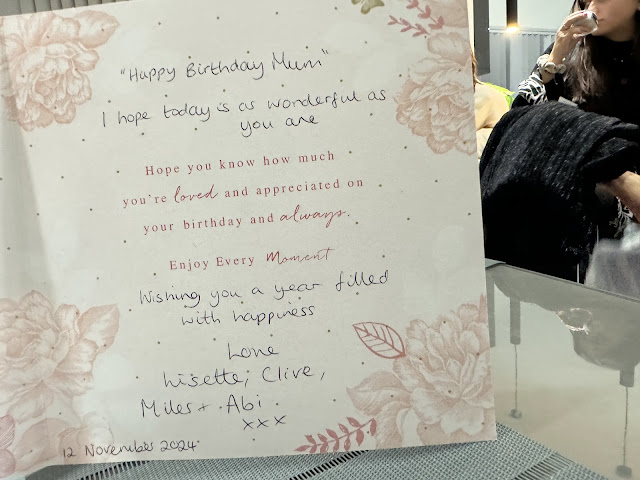 "Happy Birthday Mum"
I hope today is as wonderful as
you are
Hope you know how much
you're loved and appreciated on
your birthday and always.
Enjoy Every Moment
Wishing you a year filled
with happiness
Love
Lisette, Clive,
Miles + Abi
xxx
12 November 2024